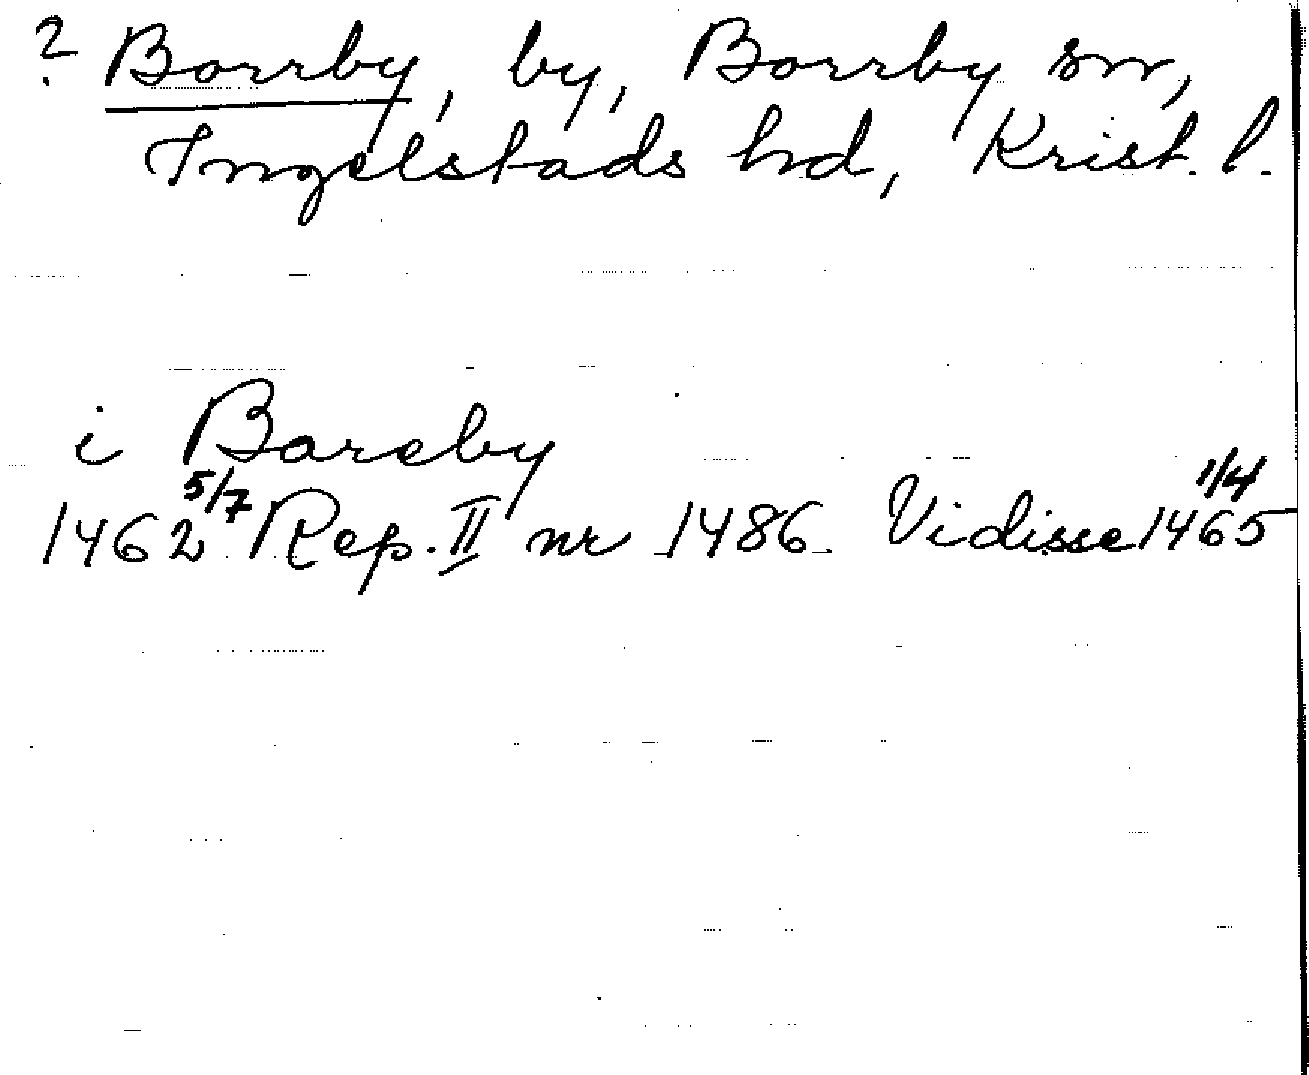 ? Borrby, by, Borrby sn,
Ingelstads hd, Krist. l.
i Boreby
1462 5/7 Rep. II nr 1486. Vidisse 1465 1/4